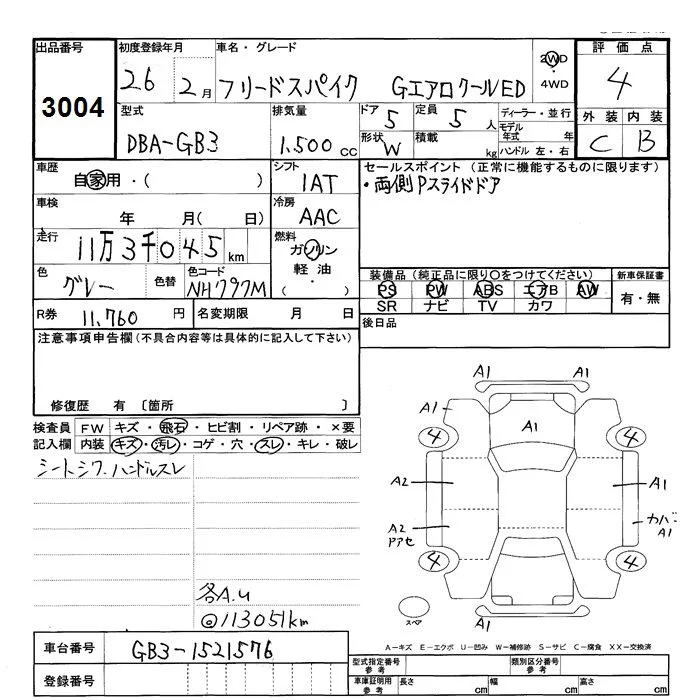 出品番号
3004
初度登録年月
26 2月
車名・グレード
フリードスパイク GエアロクールED
2WD
・
4WD
評価点
4
外装 内装
C B
型式
DBA-GB3
排気量
1.500 cc
ドア 5
定員 5 人
形状 W
積載 kg
ディーラー・並行
モデル年式 年
ハンドル 左・右
車歴
自家用・( )
シフト
IAT
セールスポイント (正常に機能するものに限ります)
・両側Pスライドドア
車検
年 月( 日)
冷房
AAC
走行
11万3千045km
燃料
ガソリン
軽油・
( )
色
グレー
色替
色コード
NH797M
装備品(純正品に限り〇をつけてください)
PS PW ABS エアB AW
SR ナビ TV カワ
新車保証書
有・無
R券 11,760 円
名変期限 月 日
後日品
注意事項申告欄(不具合内容等は具体的に記入して下さい)
修復歴 有 〔箇所 〕
検査員
記入欄
FW キズ・飛石・ヒビ割・リペア跡・×要
内装 キズ・汚レ・コゲ・穴・スレ・キレ・破レ
シートシワ.ハンドルスレ
各A.U
@113051km
A1 A1
A1
A1
4 4
A2 A1
A2
Pアセ
カバ
A1
4 4
A1
スペア
A-キズ E-エクボ U-凹み W-補修跡 S-サビ C-腐食 XX-交換済
車台番号 GB3-1521576
登録番号
型式指定番号
参考
類別区分番号
参考
車庫証明用
参考
長さ cm
幅 cm
高さ cm